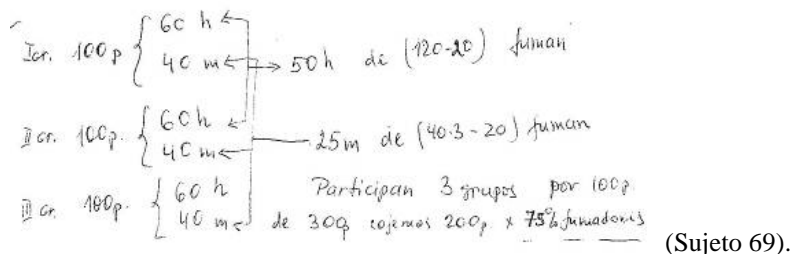 I gr. 100p { 60 h
40 m → 50 h de (120-20) fuman
II gr. 100p. { 60 h
40 m 25 m de (40·3 - 20) fuman
III gr. 100p. { 60 h Participan 3 grupos por 100p
40 m de 300 cojemos 200p x 75% fumadores
(Sujeto 69).